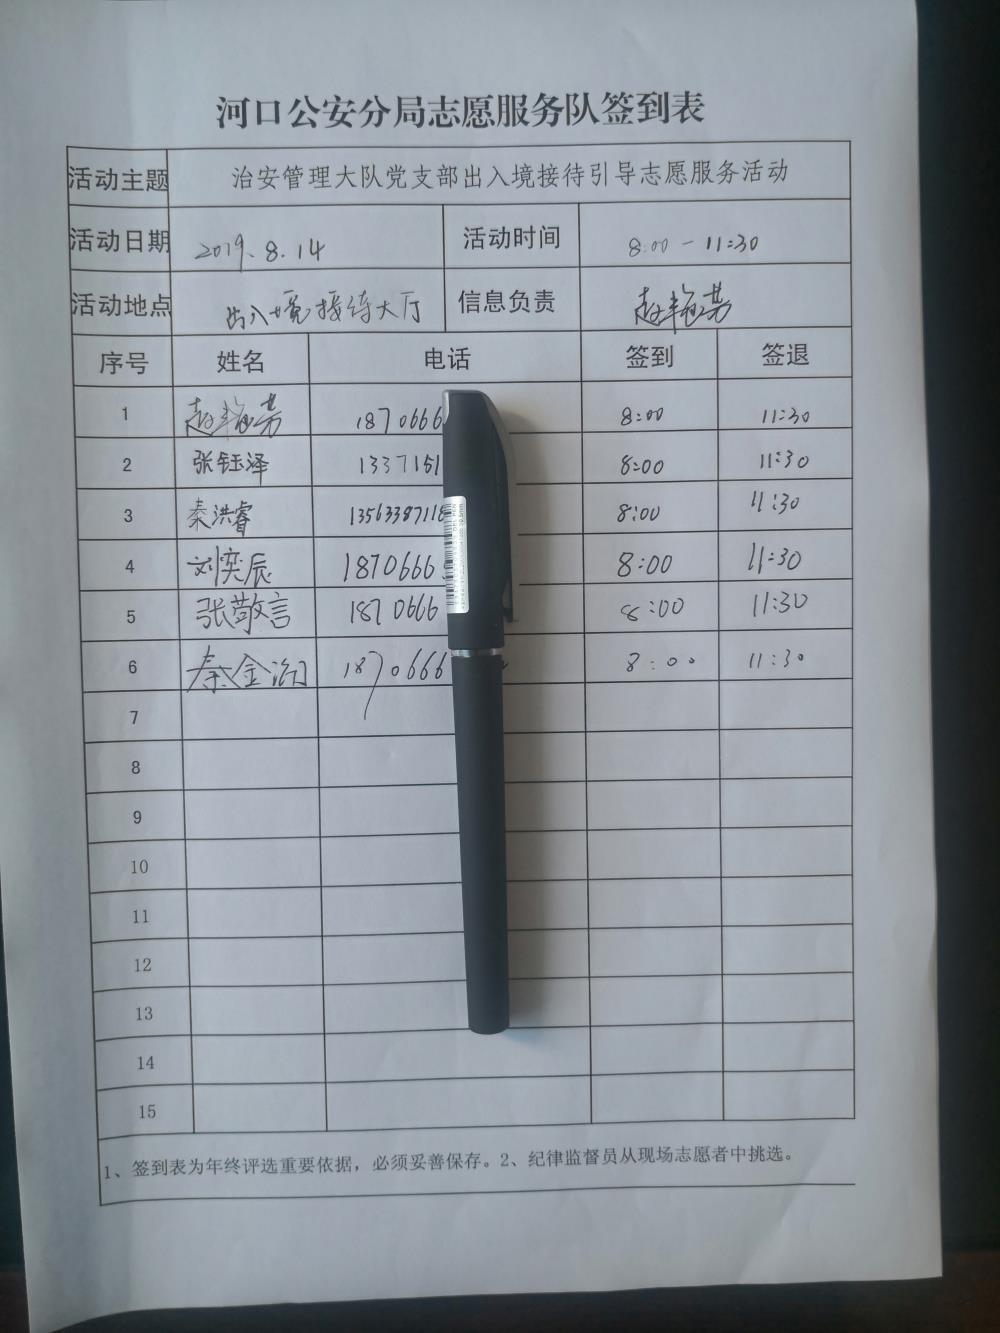 河口公安分局志愿服务队签到表
活动主题 治安管理大队党支部出入境接待引导志愿服务活动
活动日期 2019.8.14 活动时间 8:00-11:30
活动地点 出入境接待大厅 信息负责 赵艳芳
序号 姓名 电话 签到 签退
1 赵艳芳 1870666 8:00 11:30
2 张钰泽 1337151 8:00 11:30
3 秦洪睿 1356338711 8:00 11:30
4 刘奕辰 1870666 8:00 11:30
5 张敬言 1870666 8:00 11:30
6 秦金 1870666 8:00 11:30
7
8
9
10
11
12
13
14
15
1、签到表为年终评选重要依据，必须妥善保存。2、纪律监督员从现场志愿者中挑选。